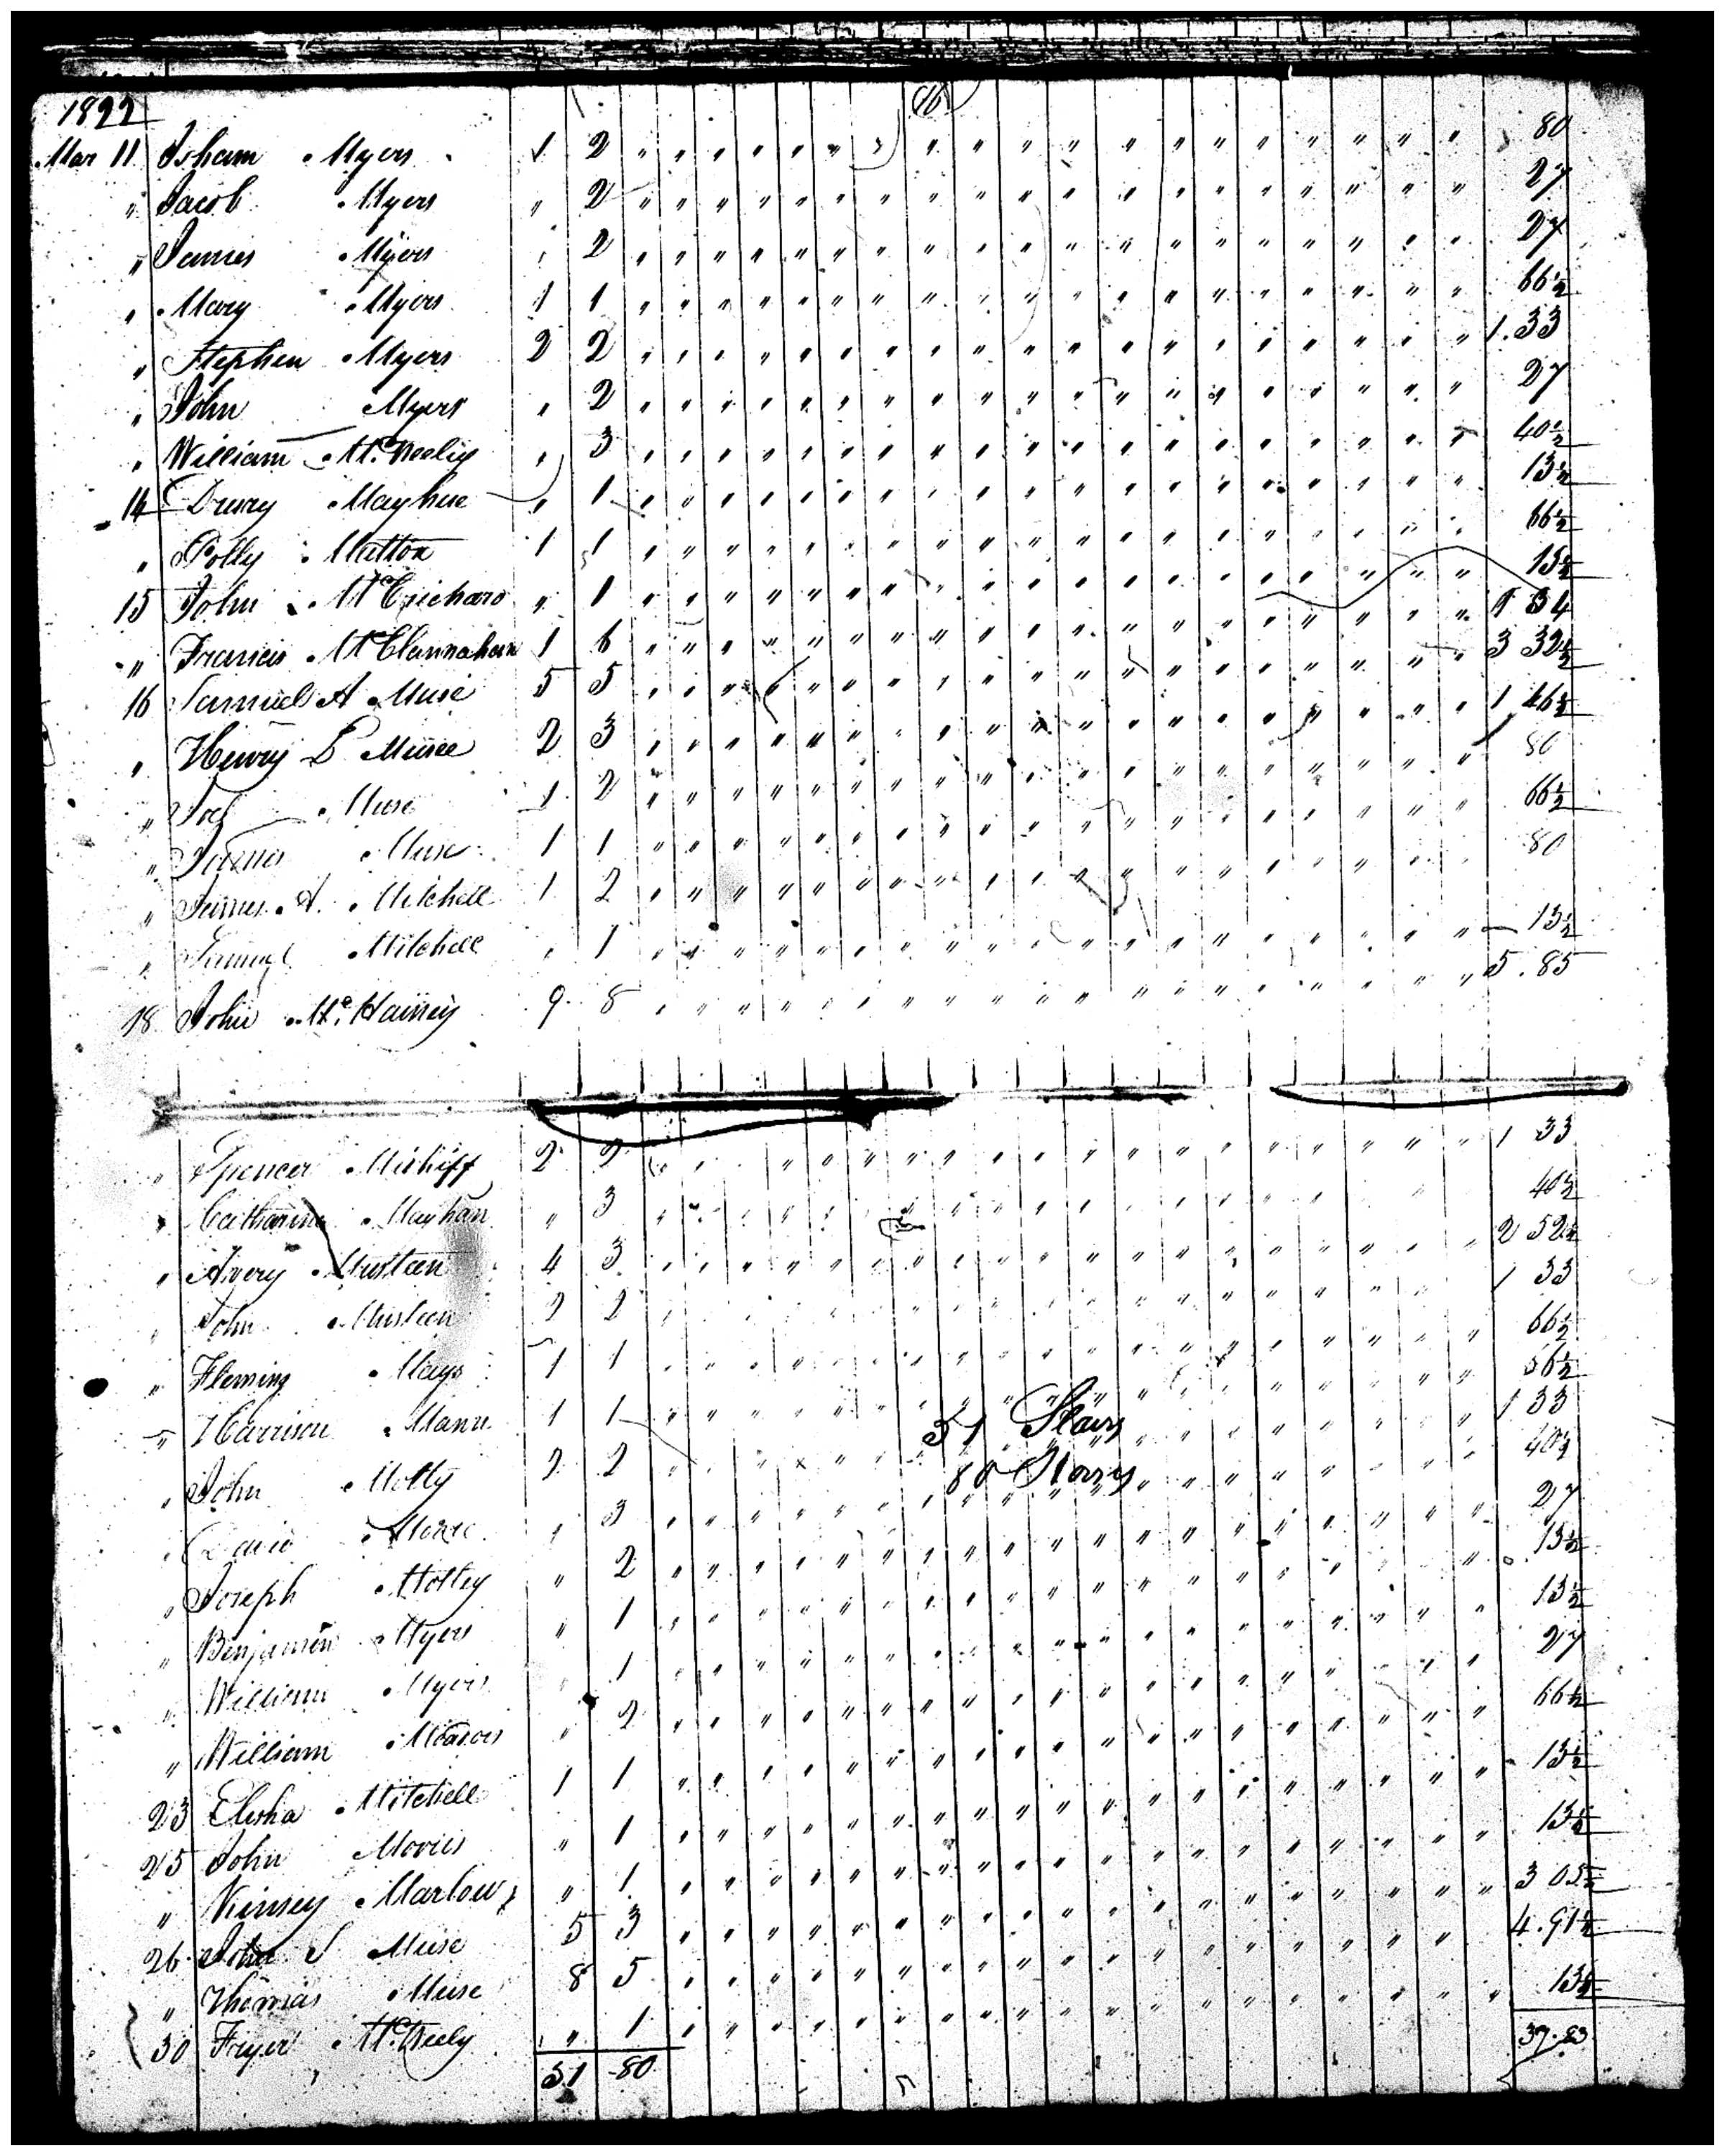 1822
16
Mar 11 Isham Myers 1 2 " " " " " " " " " " " " " " " " " " " 80
" Jacob Myers " 2 " " " " " " " " " " " " " " " " " " " 27
" James Myers " 2 " " " " " " " " " " " " " " " " " " " 27
" Mary Myers 1 1 " " " " " " " " " " " " " " " " " " " 66½
" Stephen Myers 2 2 " " " " " " " " " " " " " " " " " " " 1.33
" John Myers " 2 " " " " " " " " " " " " " " " " " " " 27
" William McNeely " 3 " " " " " " " " " " " " " " " " " " " 40½
14 Drury Mayhue " 1 " " " " " " " " " " " " " " " " " " " 13½
" Polly Matton 1 1 " " " " " " " " " " " " " " " " " " " 66½
15 John " 1 " " " " " " " " " " " " " " " " " " " 13½
" Francis McClannahan 1 6 " " " " " " " " " " " " " " " " " " " 1 34
16 Samuel A Muse 5 5 " " " " " " " " " " " " " " " " " " " 3 32½
" Henry L Muse 2 3 " " " " " " " " " " " " " " " " " " " 1 46½
" Muse 1 2 " " " " " " " " " " " " " " " " " " " 80
" James Muse 1 1 " " " " " " " " " " " " " " " " " " " 66½
" James A. Mitchell 1 2 " " " " " " " " " " " " " " " " " " " 80
" Samuel Mitchell " 1 " " " " " " " " " " " " " " " " " " " 13½
18 John McHaney 9 8 " " " " " " " " " " " " " " " " " " " 5.85
" Spencer 2 2 " " " " " " " " " " " " " " " " " " " 1 33
" Catharine Mayhan " 3 " " " " " " " " " " " " " " " " " " " 40½
" Avery Musteen 4 3 " " " " " " " " " " " " " " " " " " " 2 52½
" John Musteen 2 2 " " " " " " " " " " " " " " " " " " " 1 33
" Fleming Mays 1 1 " " " " " " " " " " " " " " " " " " " 66½
" Harrison Mann 1 1 " " " " " " " " " " " " " " " " " " " 66½
51 Slaves
" John Motty 2 2 " " " " " " " " " " " " " " " " " " " 1 33
80 Horses
" David " 3 " " " " " " " " " " " " " " " " " " " 40½
" Joseph Motley " 2 " " " " " " " " " " " " " " " " " " " 27
" Benjamin Myers " 1 " " " " " " " " " " " " " " " " " " " 13½
" William Myers " 1 " " " " " " " " " " " " " " " " " " " 13½
" William " 2 " " " " " " " " " " " " " " " " " " " 27
23 Elisha Mitchell 1 1 " " " " " " " " " " " " " " " " " " " 66½
25 John Morris " 1 " " " " " " " " " " " " " " " " " " " 13½
" Kinsey Marlow " 1 " " " " " " " " " " " " " " " " " " " 13½
26 John S Muse 5 3 " " " " " " " " " " " " " " " " " " " 3 05½
" Thomas Muse 8 5 " " " " " " " " " " " " " " " " " " " 4.91½
30 Fryer McNeely " 1 " " " " " " " " " " " " " " " " " " " 13½
51 80 37.83